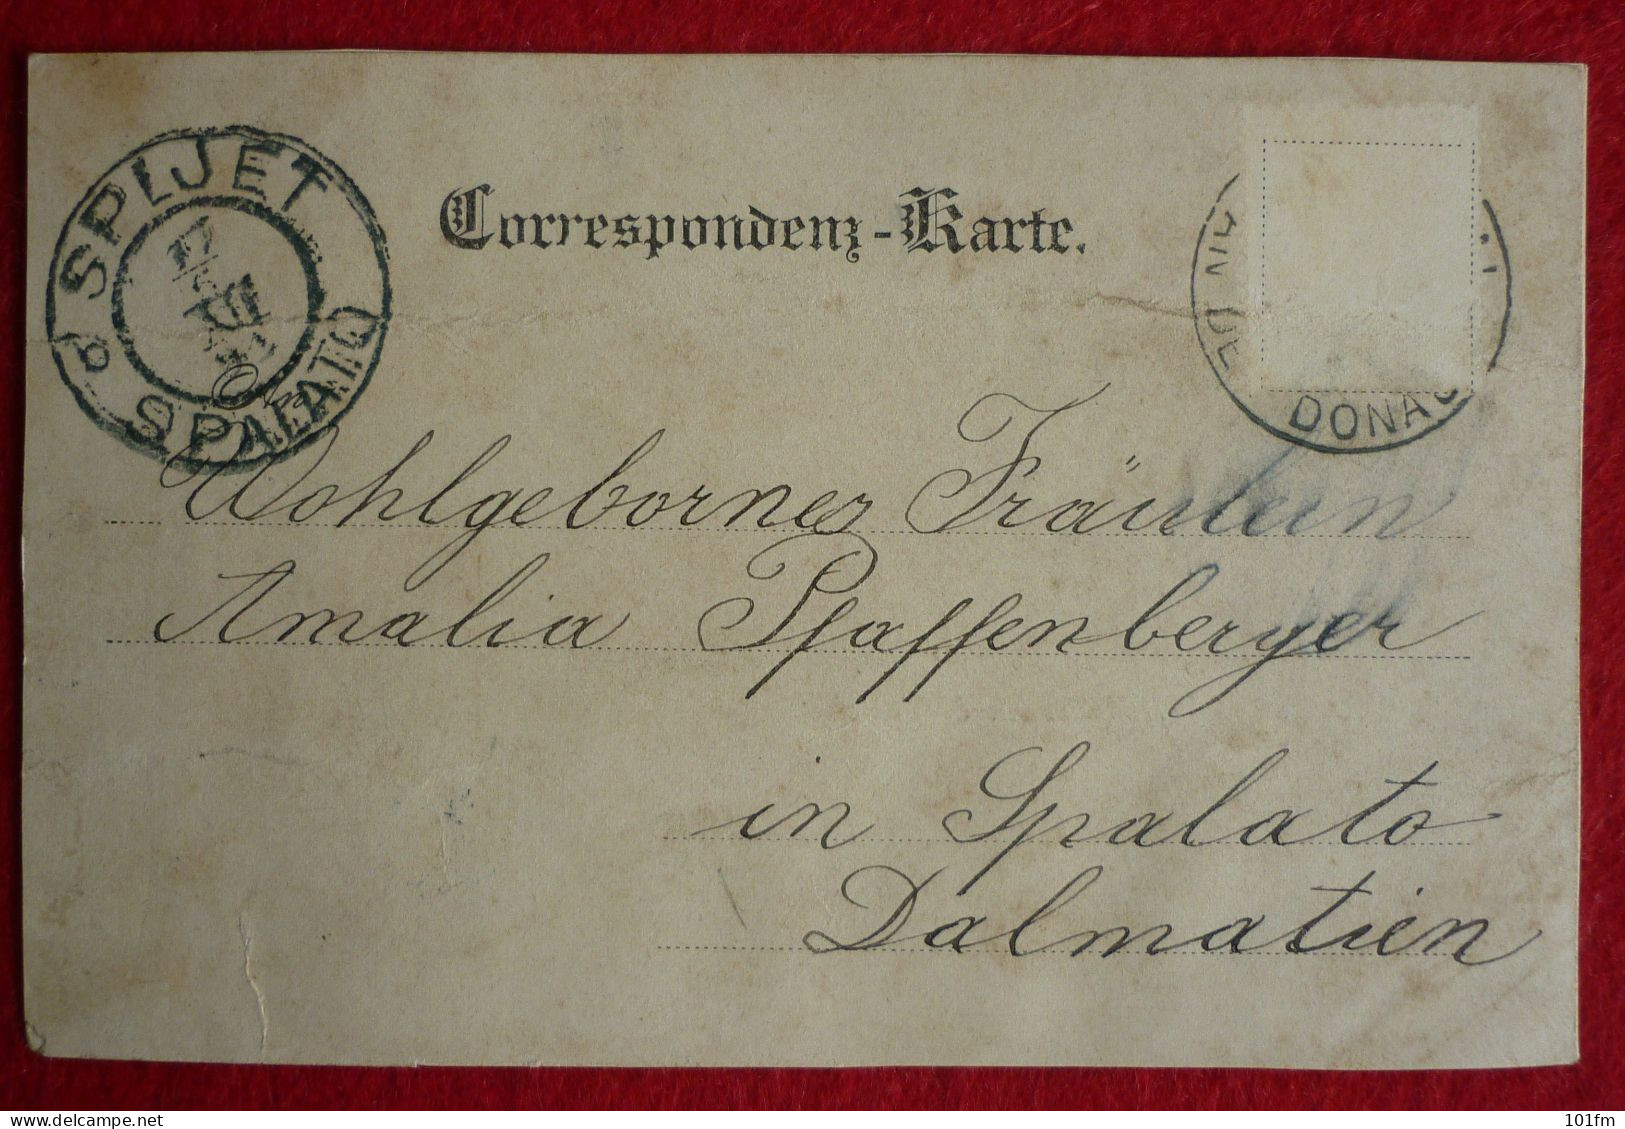 SPLJET
SPALATO
Correspondenz-Karte.
DONAU
An
Wohlgebornes Fräulein
Amalia Pfaffenberger
in Spalato
Dalmatien
delcampe.net
101fm